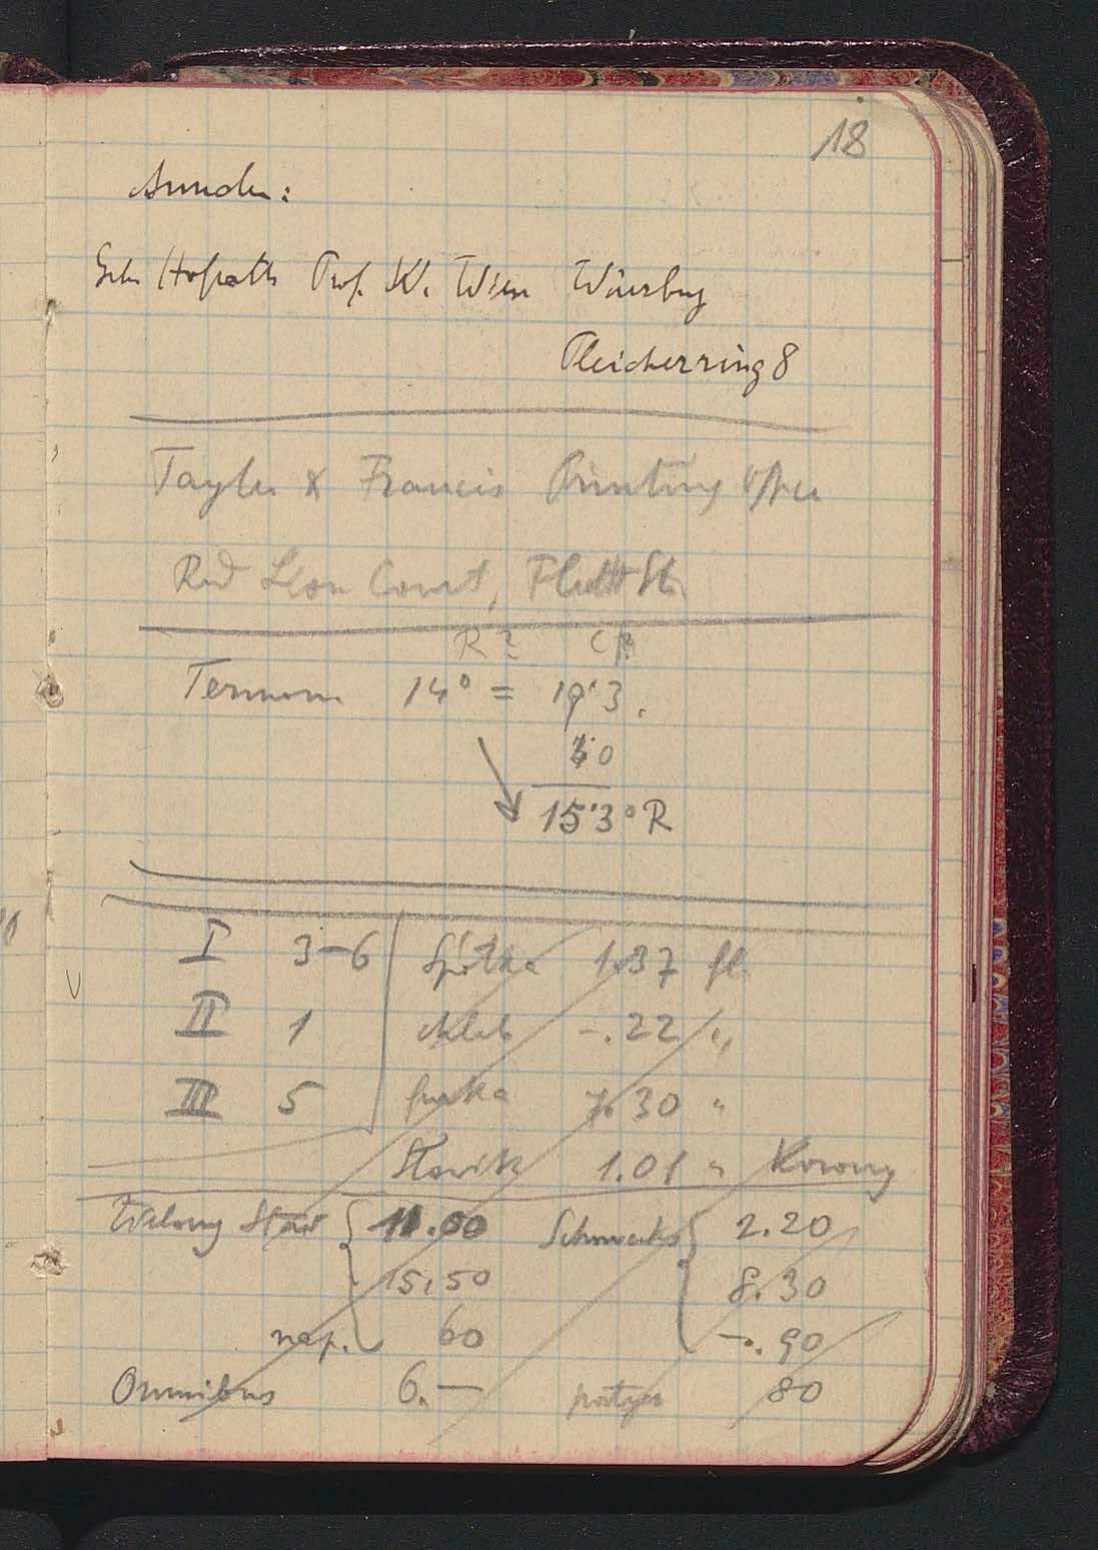 18
Annalen:
Geh. Hofrath Prof. W. Wien Würzburg
Pleicherring 8
Taylor & Francis Printing Office
Red Lion Court, Fleet St.
R? C?
14° = 19·3.
40
15·3° R
I 3–6 Spółka 1.37 fl.
II 1 –.22 "
III 5 7.30 "
1.01 " Korony
11.00 Schmecks 2.20
15.50 8.30
nap. 60 –.90
Omnibus 6.— 80